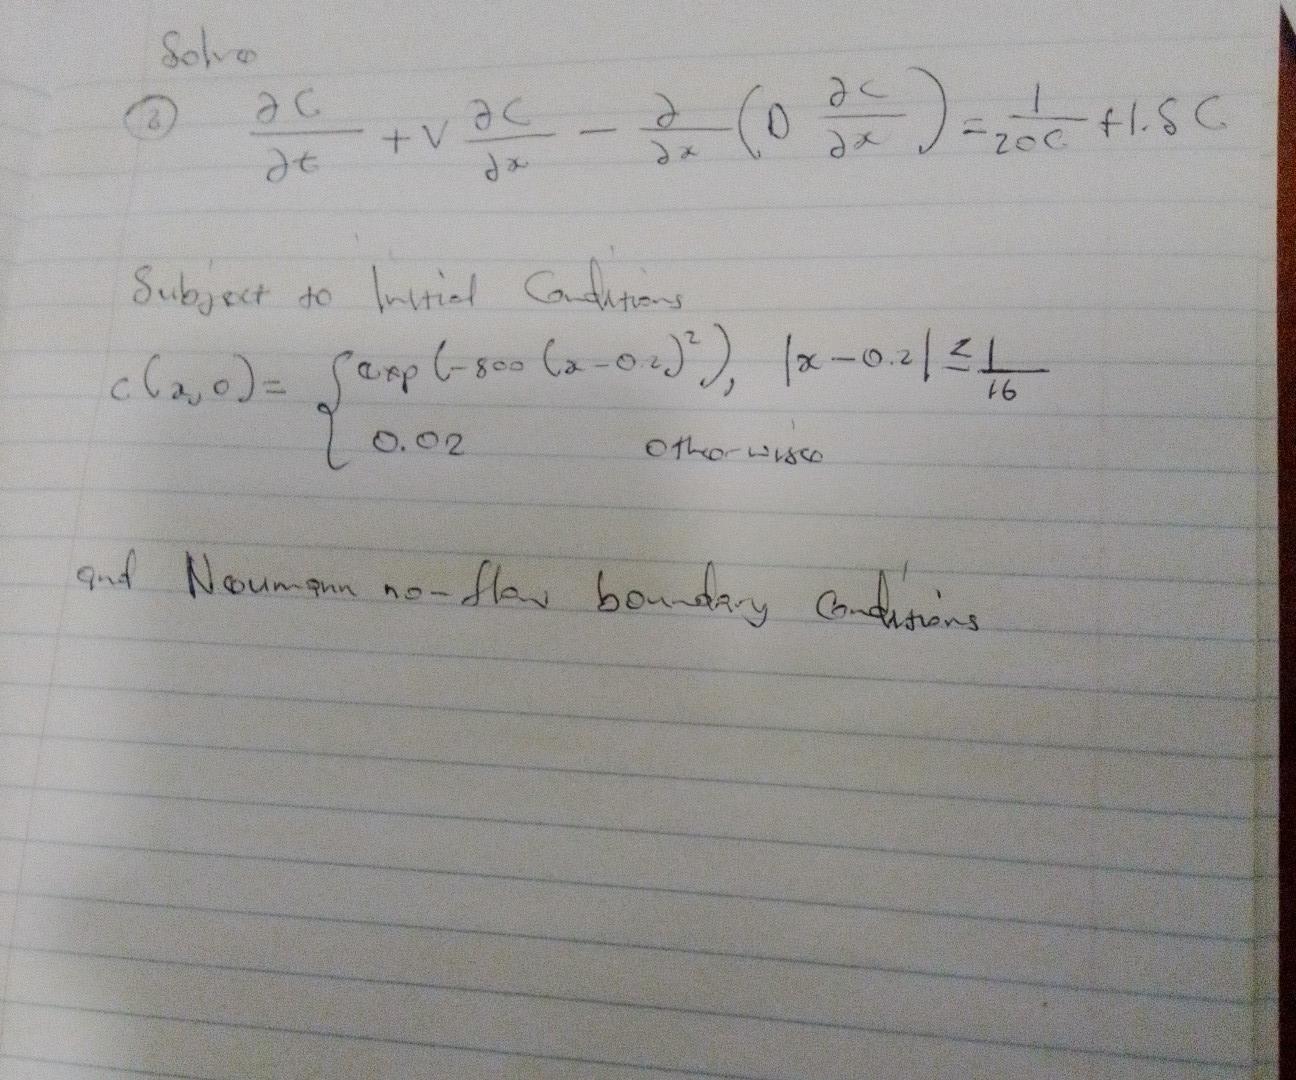 Solve
② ∂C/∂t + V ∂C/∂x − ∂/∂x (D ∂C/∂x) = 1/20C + 1.5C
Subject to Initial Conditions
c(x,0) = { exp(-800(x-0.2)²), |x-0.2| ≤ 1/16
0.02 otherwise
and Neumann no-flow boundary conditions